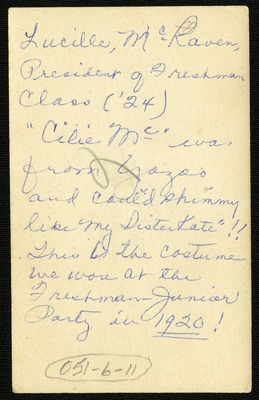 Lucille, McRaven,
President of Freshman
Class ('24)
"Cilie Mc" was
from Yazoo
and could shimmy
like "My Sister Kate"!!
This is the costume
we wore at the
Freshman-Junior
Party in 1920!
051-6-11